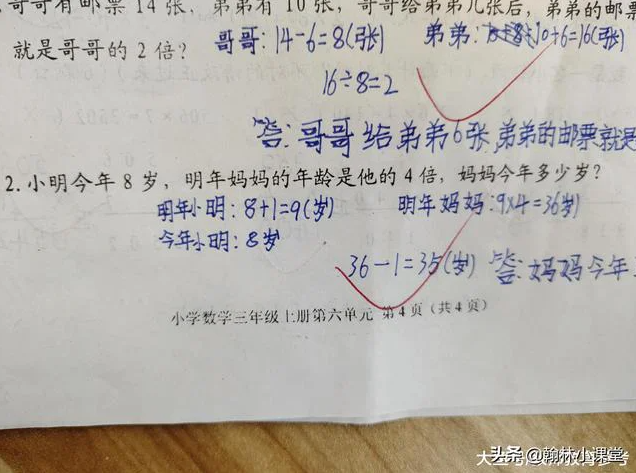 哥哥有邮票14张，弟弟有10张，哥哥给弟弟几张后，弟弟的邮票
就是哥哥的2倍？ 哥哥：14-6=8(张) 弟弟：10+6=16(张)
16÷8=2
答：哥哥给弟弟6张，弟弟的邮票就是
2.小明今年8岁，明年妈妈的年龄是他的4倍，妈妈今年多少岁？
明年小明：8+1=9(岁) 明年妈妈：9×4=36(岁)
今年小明：8岁
36-1=35(岁) 答：妈妈今年
小学数学三年级上册第六单元 第4页（共4页）
头条@翰林小课堂